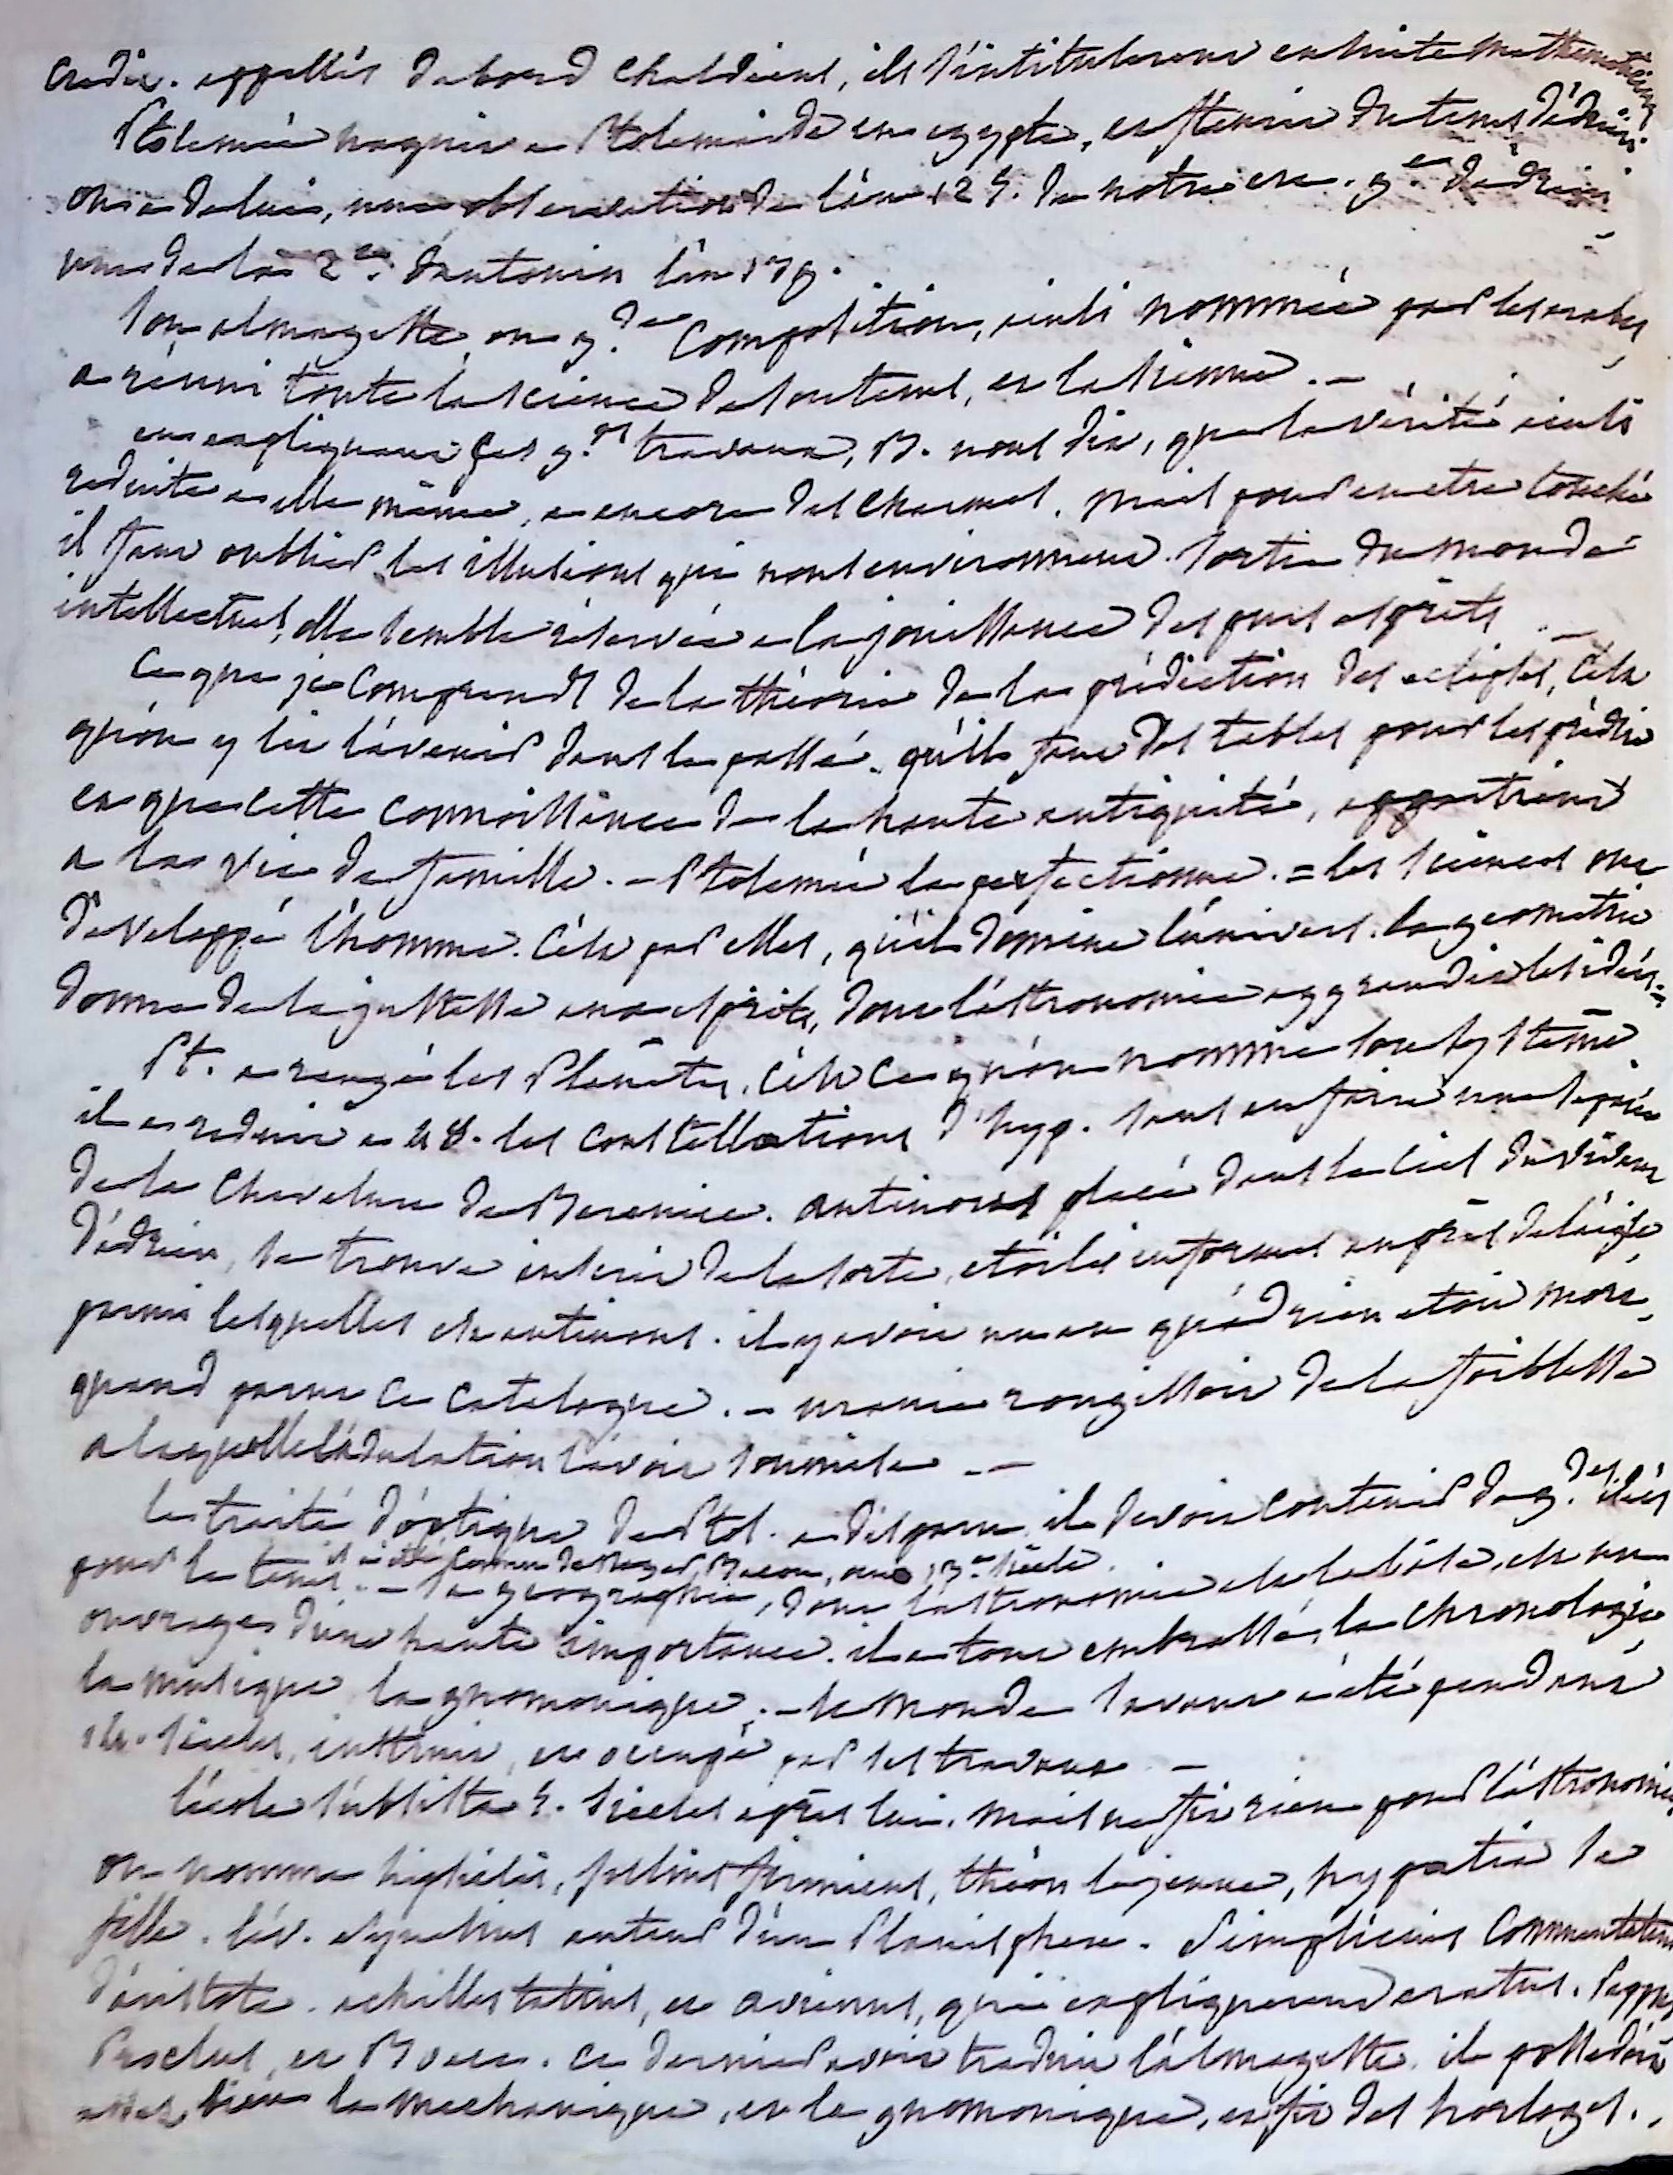 credit. appellés dabord chaldéens, ils s'intitulerent ensuite mathematiciens
Ptolemée naquit a Ptolemaïde en egypte, et fleurit du tems d'adrien
on a de lui, une observation de l'an 125. de notre ere. 9.e d'adrien
une de la 2.e d'antonin l'an 139.
Son almageste ou g.de Composition, ainsi nommée par les arabes,
a réuni toute la science de son tems, et la sienne. –
en expliquant ses g.ds travaux, B. nous dit, que la vérité ainsi
reduite a elle même, a encore des charmes. mais pour en etre touché
il faut oublier les illusions qui nous environnent. sortie du monde
intellectuel, elle semble réservée a la jouissance des purs esprits. –
Ce que je comprends de la théorie de la prédiction des eclipses, c'est
qu'on y lit l'avenir dans le passé. qu'il faut des tables pour les prédire
et que cette connoissance de la haute antiquité, appartient
a la vie de famille. – Ptolemée la perfectionna. = les sciences ont
développé l'homme. C'est par elles, qu'il domine l'univers. la geometrie
donne de la justesse aux esprits, dont l'astronomie aggrandit les idées. =
Pt. a rangé les Planètes, c'est ce qu'on nomme son système.
il a reduit a 48. les constellations d'hyp. sans en faire une séparée
de la chevelure de Berenice. antinous placé dans le ciel du vivant
d'adrien, se trouve inseré de la sorte, etoiles informes auprès de l'aigle,
parmi lesquelles est antinous. il y avoit un an qu'adrien etoit mort,
quand parut ce catalogue. – uranie rougissoit de la foiblesse
a laquelle l'adulation l'avoit soumise. –
le traité d'optique de Ptol. a disparu. il devoit contenir de g.des idées
il a été connu de Roger Bacon, au 13.e siècle.
pour le tems. – sa geographie, dont l'astronomie est la base, est un
ouvrage d'une haute importance. il a tout embrassé, la chronologie
la musique, la gnomonique. – le monde savant a été pendant
siecles, instruit, et occupé par ses travaux. –
l'école subsista 5. siecles après lui. mais ne fit rien pour l'astronomie.
on nomme hipsiclès, julius firmicus, théon le jeune, hypatie sa
fille. l'év. synesius auteur d'un Planisphere. Simplicius Commentateur
d'aristote. achilles tatius, et avienus, qui expliquerent aratus. Pappus,
Proclus, et Boece. ce dernier avoit traduit l'almageste. il possedoit
assez bien la mechanique, et la gnomonique, et fit des horloges.